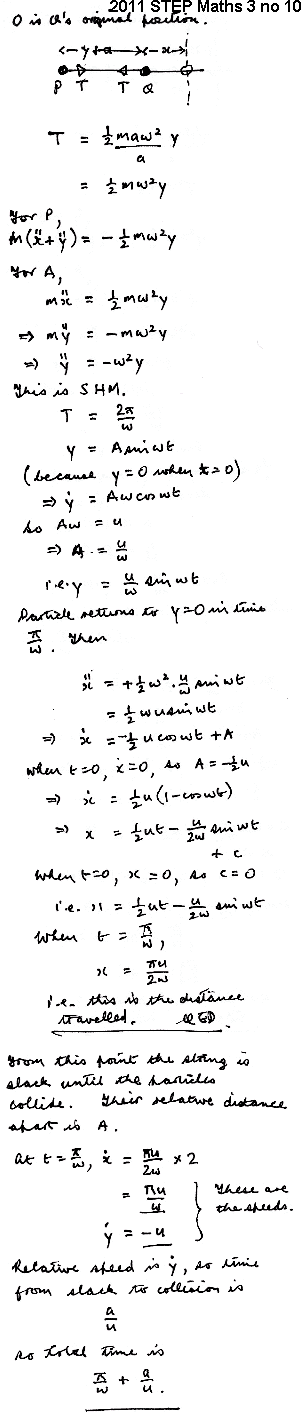 2011 STEP Maths 3 no 10
O is Q's original position.
← y+a → ← x →
P T T Q
T = ½maω² y / a
= ½mω²y
For P,
m(ẍ+ÿ) = -½mω²y
For A,
mẍ = ½mω²y
⇒ mÿ = -mω²y
⇒ ÿ = -ω²y
This is SHM.
T = 2π/ω
y = A sin ωt
(because y=0 when t=0)
⇒ ẏ = Aω cos ωt
so Aω = u
⇒ A = u/ω
i.e. y = u/ω sin ωt
Particle returns to y=0 in time
π/ω. Then
ẍ = +½ω². u/ω sin ωt
= ½ωu sin ωt
⇒ ẋ = -½u cos ωt + A
when t=0, ẋ=0, so A = -½u
⇒ ẋ = ½u(1-cos ωt)
⇒ x = ½ut - u/2ω sin ωt
+ c
When t=0, x=0, so c=0
i.e. x = ½ut - u/2ω sin ωt
When t = π/ω,
x = πu/2ω
i.e. this is the distance
travelled. QED.
From this point the string is
slack until the particles
collide. Their relative distance
apart is A.
At t = π/ω, ẋ = πu/2ω × 2
= πu/ω } These are
ẏ = -u } the speeds.
Relative speed is ẏ, so time
from slack to collision is
a/u
so total time is
π/ω + a/u.